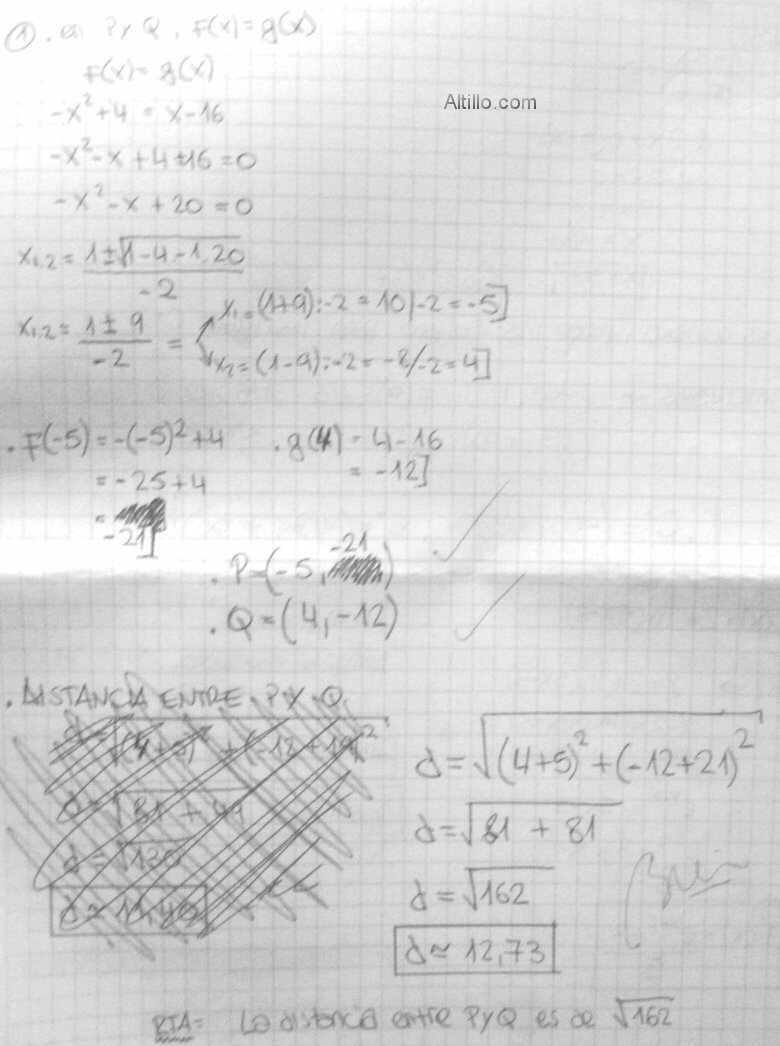 ① . en P y Q , F(x) = g(x)
F(x) = g(x)
Altillo.com
-x² + 4 = x - 16
-x² - x + 4 + 16 = 0
-x² - x + 20 = 0
x₁,₂ = 1 ± √1 - 4 · -1 · 20 / -2
x₁,₂ = 1 ± 9 / -2 =
x₁ = (1+9) : -2 = 10/-2 = -5]
x₂ = (1-9) : -2 = -8/-2 = 4]
. F(-5) = -(-5)² + 4
= -25 + 4
= -21]
. g(4) = 4 - 16
= -12]
. P = (-5, -21)
. Q = (4, -12)
. DISTANCIA ENTRE P Y Q
d = √(4+5)² + (-12+21)²
d = √81 + 81
d = √162
d ≃ 12,73
RTA = La distancia entre P y Q es de √162